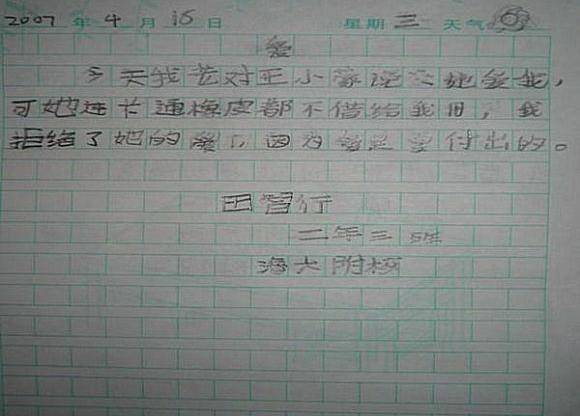 2007 年 4 月 15 日 星期 三 天气
爱
今天我对王小蒙说她爱我,
可她连卡通橡皮都不借给我用,我
拒绝了她的爱,因为爱是要付出的。
田智行
二年三班
海大附校